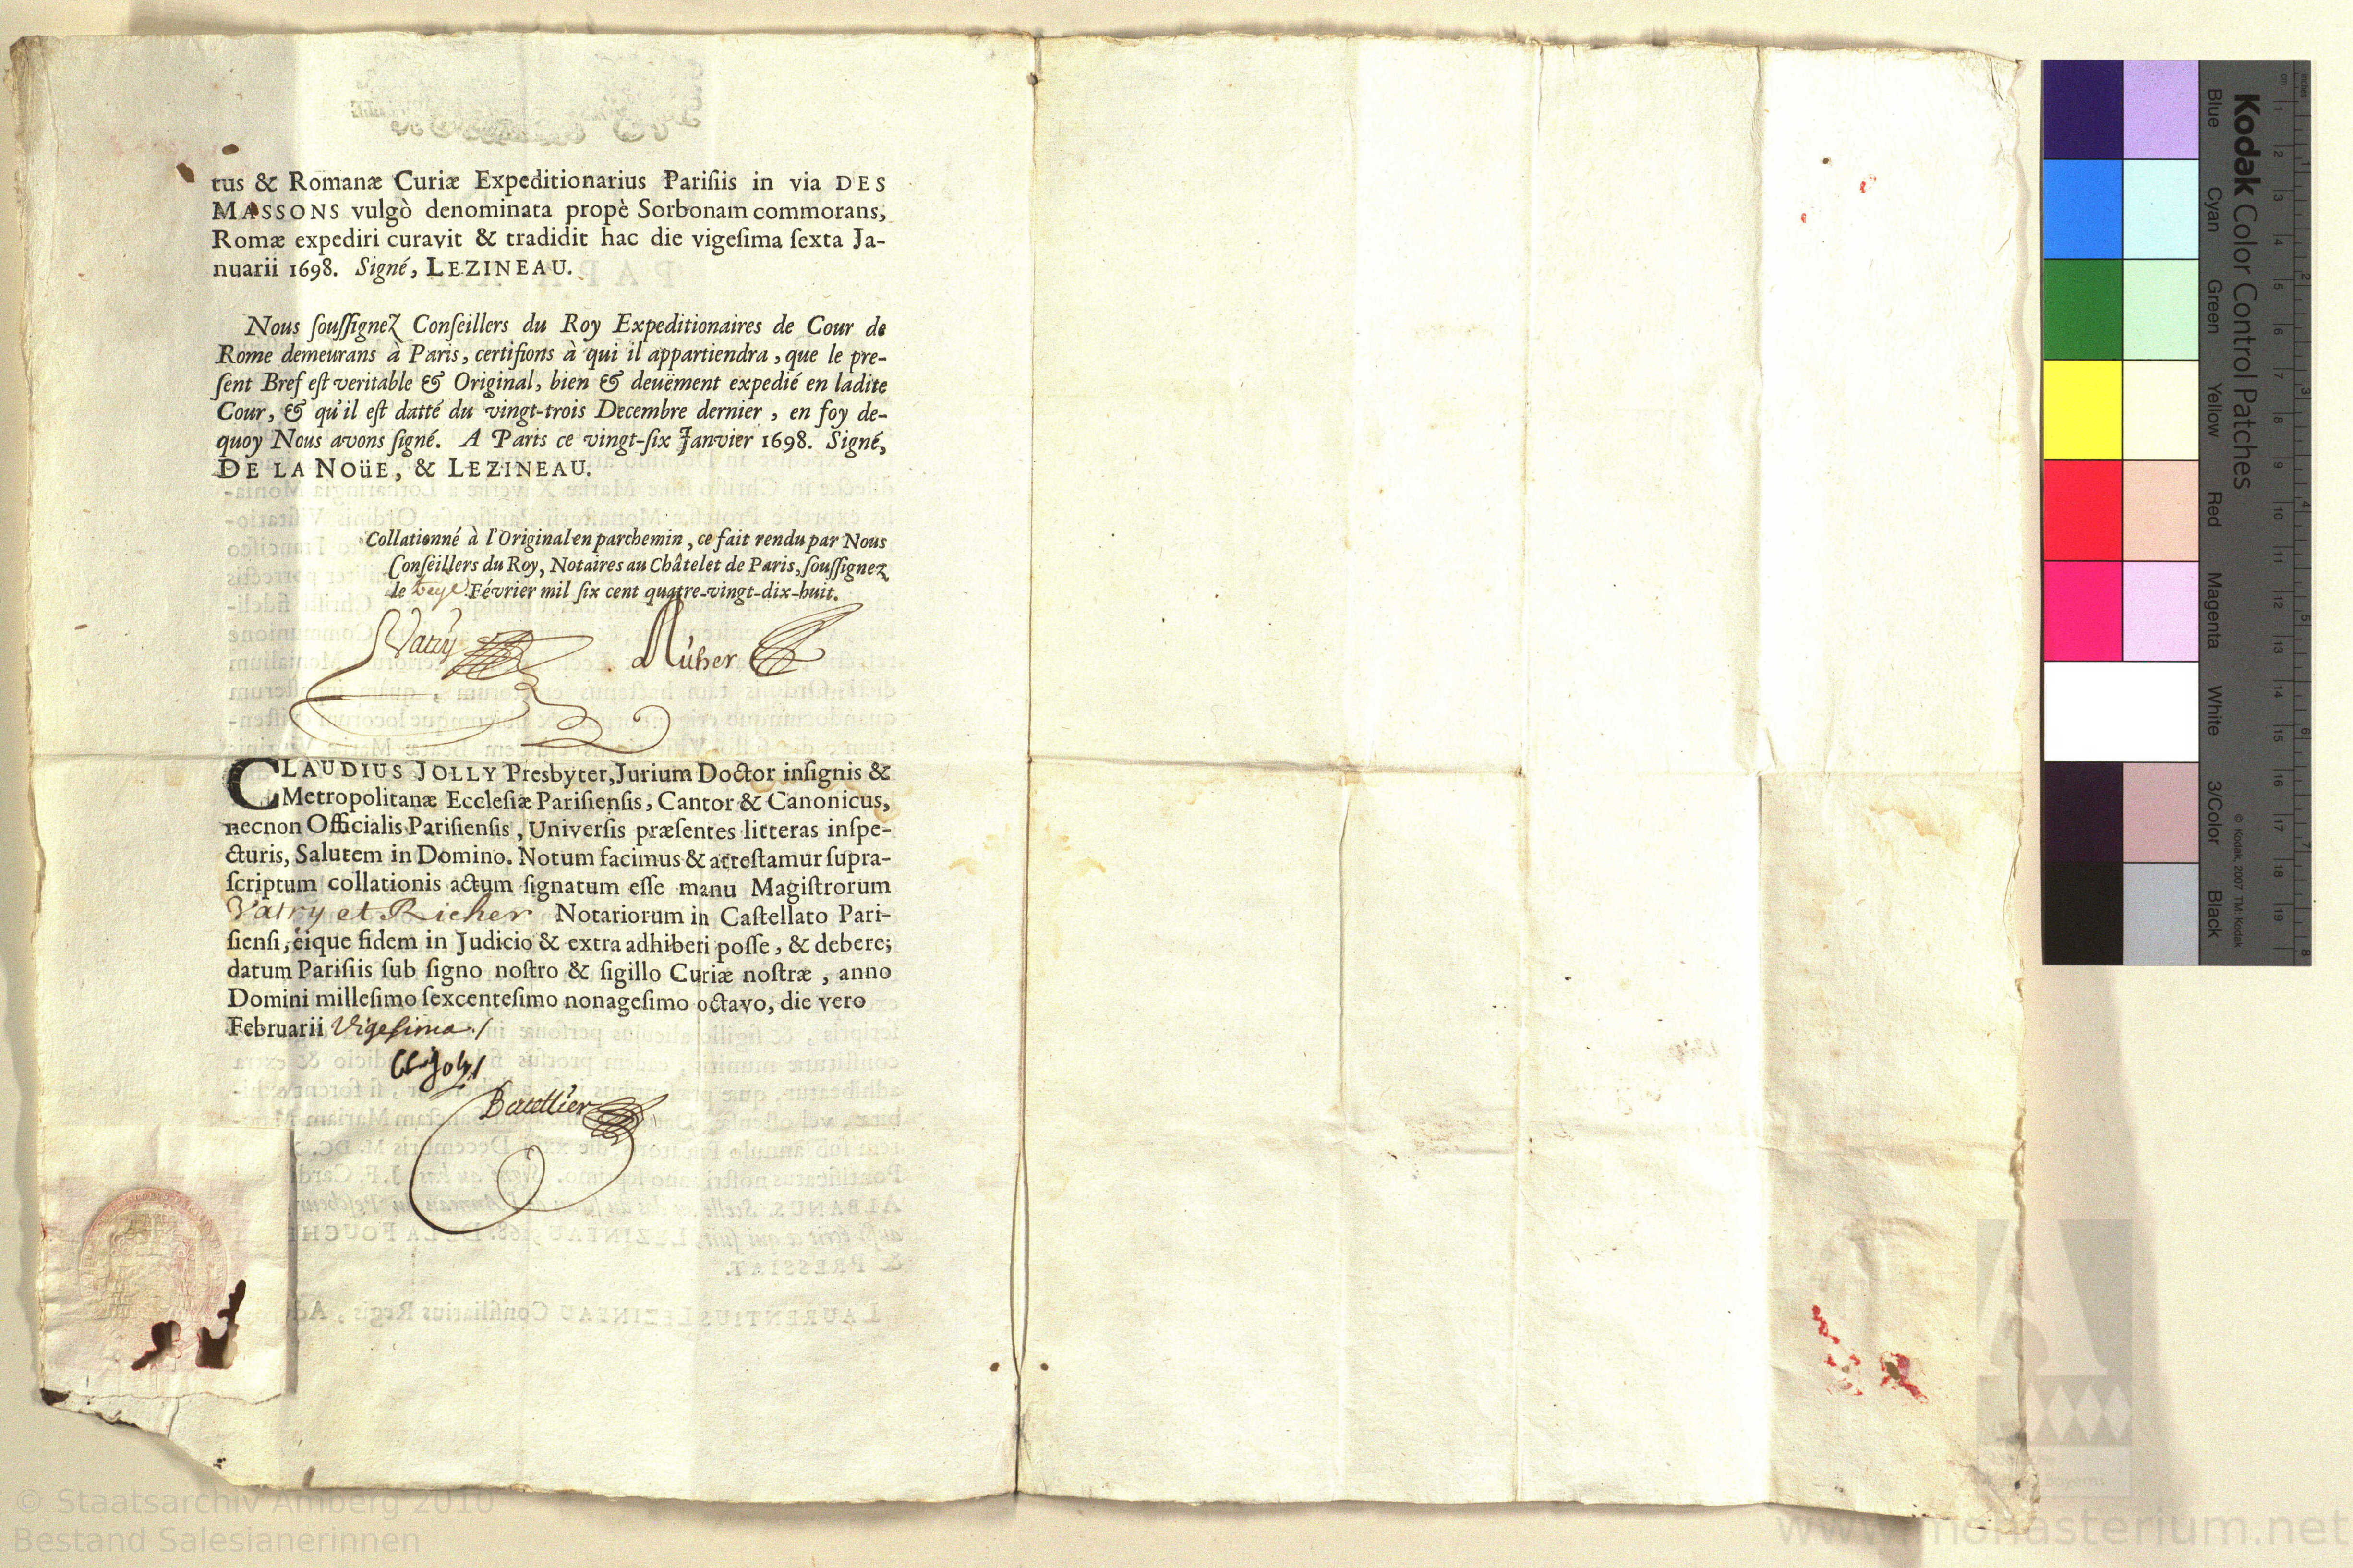 tus & Romanæ Curiæ Expeditionarius Parisiis in via DES
MASSONS vulgò denominata propè Sorbonam commorans,
Romæ expediri curavit & tradidit hac die vigesima sexta Ja-
nuarii 1698. Signé, LEZINEAU.
Nous soussignez Conseillers du Roy Expeditionaires de Cour de
Rome demeurans à Paris, certifions à qui il appartiendra, que le pre-
sent Bref est veritable & Original, bien & deuëment expedié en ladite
Cour, & qu'il est datté du vingt-trois Decembre dernier, en foy de-
quoy Nous avons signé. A Paris ce vingt-six Janvier 1698. Signé,
DE LA NOüE, & LEZINEAU.
Collationné à l'Original en parchemin, ce fait rendu par Nous
Conseillers du Roy, Notaires au Châtelet de Paris, soussignez
le Février mil six cent quatre-vingt-dix-huit.
Vatry Richer
CLAUDIUS JOLLY Presbyter, Jurium Doctor insignis &
Metropolitanæ Ecclesiæ Parisiensis, Cantor & Canonicus,
necnon Officialis Parisiensis, Universis præsentes litteras inspe-
cturis, Salutem in Domino. Notum facimus & attestamur supra-
scriptum collationis actum signatum esse manu Magistrorum
Vatry et Richer Notariorum in Castellato Pari-
siensi, eique fidem in Judicio & extra adhiberi posse, & debere;
datum Parisiis sub signo nostro & sigillo Curiæ nostræ, anno
Domini millesimo sexcentesimo nonagesimo octavo, die vero
Februarii Vigesima
Cl. Joly
Kodak Color Control Patches
Blue Cyan Green Yellow Red Magenta White 3/Color Black
© Kodak, 2007 TM: Kodak
© Staatsarchiv Amberg 2010
Bestand Salesianerinnen
www.monasterium.net